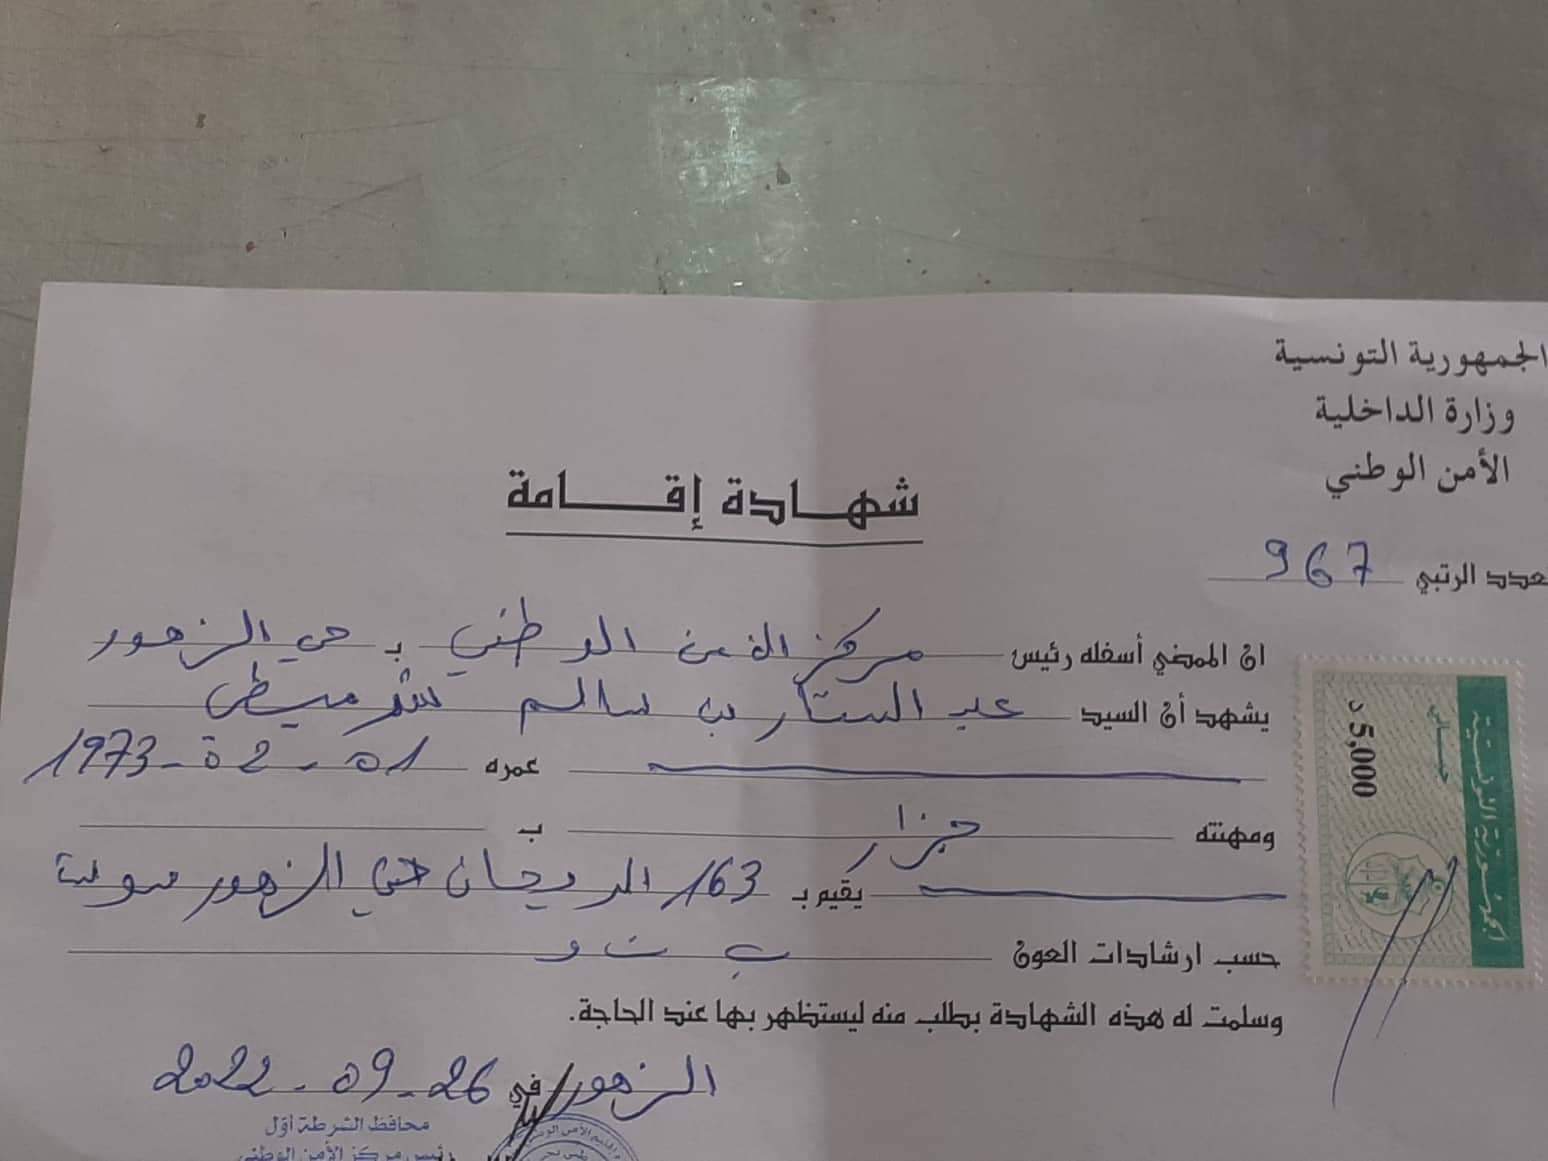 الجمهورية التونسية
وزارة الداخلية
الأمن الوطني
شهادة إقامة
عدد الرتبي 967
ان الممضي أسفله رئيس مركز الأمن الوطني بـ حي الزهور
يشهد أن السيد عبد الستار بن سالم شرميطي
عمره 01-02-1973
ومهنته جزار ب
يقيم بـ 163 الريحان حي الزهور سوسة
حسب ارشادات العون ب ت و
وسلمت له هذه الشهادة بطلب منه ليستظهر بها عند الحاجة.
الزهور في 26-09-2022
محافظ الشرطة أوّل
رئيس مركز الأمن الوطني
الجمهورية التونسية
5,000 د